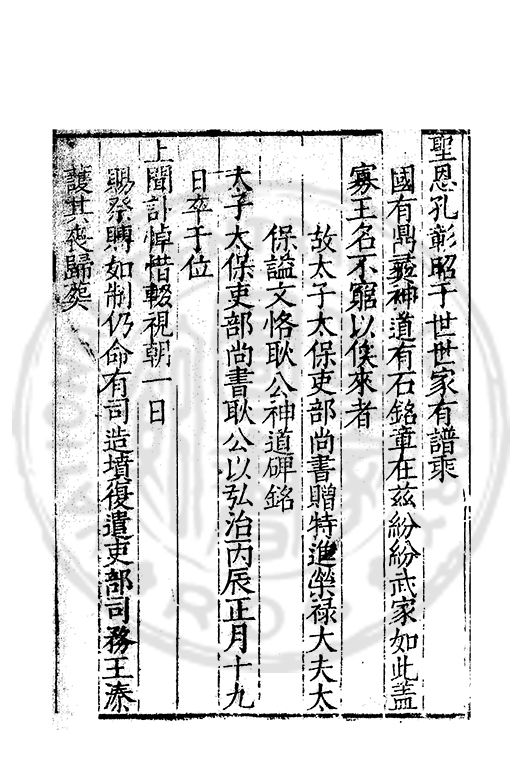 聖恩孔彰昭于世世家有譜乘
國有鼎彝神道有石銘章在茲紛紛武家如此盖
寡王名不窮以俟來者
故太子太保吏部尚書贈特進榮禄大夫太
保謚文恪耿公神道碑銘
太子太保吏部尚書耿公以弘治丙辰正月十九
日卒于位
上聞訃悼惜輟視朝一日
賜祭賻如制仍命有司造墳復遣吏部司務王
護其喪歸葬